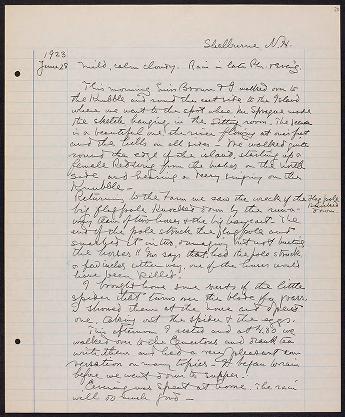 Shelburne N.H.
1923
June 28 Mild, calm cloudy. Rain in late P.M. & evg.
This morning Miss Brown & I walked out to
the Knubble and round the east side to the Island
where we went to the spot where Mr Sprague made
the sketch hanging in the sitting room. The
is a beautiful one, the river flowing at our feet
and the hills on all sides - We walked quite
round the edge of the island, starting up a
female Redwing from the bushes on the north
side and hearing a Veery singing on the
Knubble -
Returning to the Farm we saw the wreck of the
flag pole
down
big flag pole knocked down by the run-
away team of two horses & the big hay cart. The
end of the pole struck the flag pole and
smashed it into damaging but not hurting
the horses!! Gus says that had the pole struck
a few inches either way, one of the horses would
have been killed.
I brought home some nests of the little
spider that turns over the blade of grass.
I showed them at the house and opened
one, taking out the spider & the eggs.
This afternoon I rested and at 4.30 we
walked over to the and drank tea
with them and had a very pleasant con-
versation on many topics - It began to rain
before we went down to supper.
Evening was spent at home. The rain
will do much good -